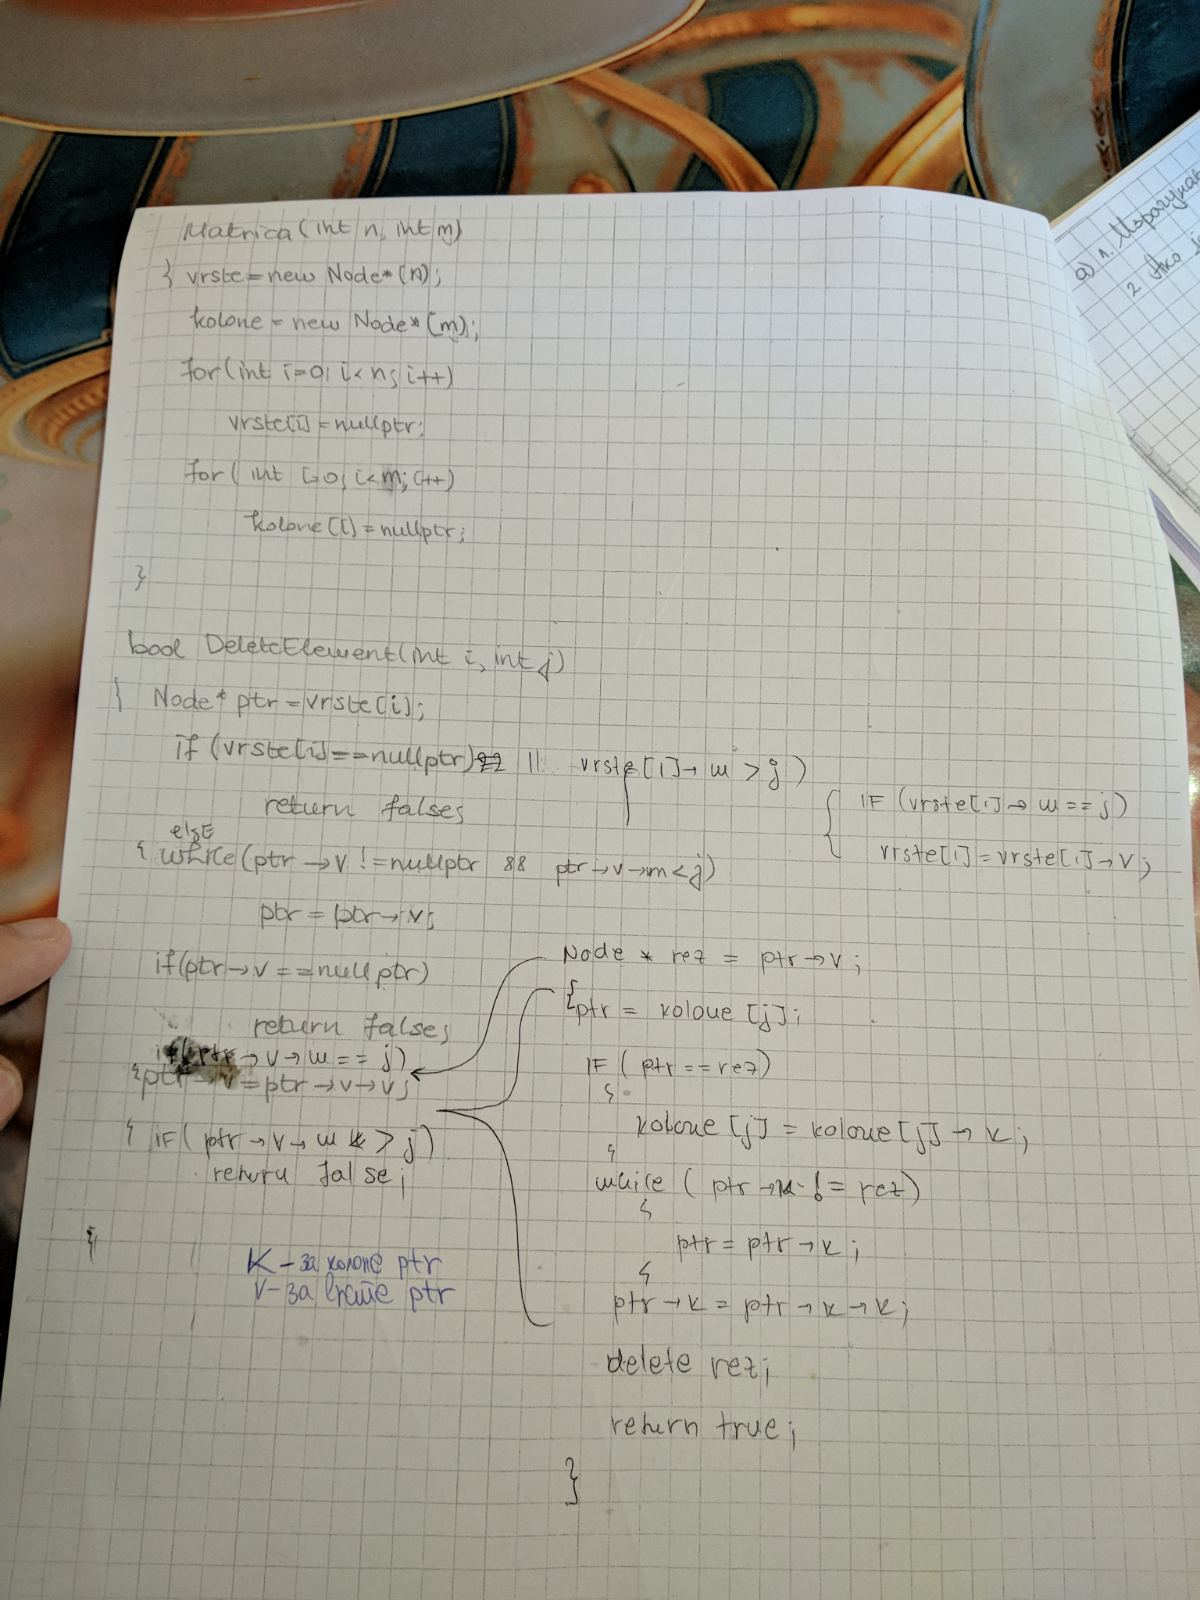 Matrica(int n, int m)
{ vrste=new Node*(n);
kolone=new Node*[m];
for(int i=0; i<n; i++)
vrste[i]=nullptr;
for(int i=0; i<m; i++)
kolone[i]=nullptr;
}
bool DeleteElement(int i, int j)
{ Node* ptr=vrste[i];
if(vrste[i]==nullptr) || vrste[i]→m>j)
return false;
{ IF (vrste[i]→m==j)
vrste[i]=vrste[i]→v;
else
{ while(ptr→v!=nullptr && ptr→v→m<j)
ptr=ptr→v;
if(ptr→v==nullptr)
return false;
if(ptr→v→m==j)
{ptr→v=ptr→v→v;
{ IF(ptr→v→m > j)
return false;
}
K-за колоне ptr
V-за врсте ptr
Node * rez = ptr→v;
{ptr = kolone[j];
IF(ptr==rez)
{
kolone[j]=kolone[j]→k;
}
while(ptr→k != rez)
{
ptr=ptr→k;
}
ptr→k=ptr→k→k;
delete rez;
return true;
}
а) 1.
2 Ако